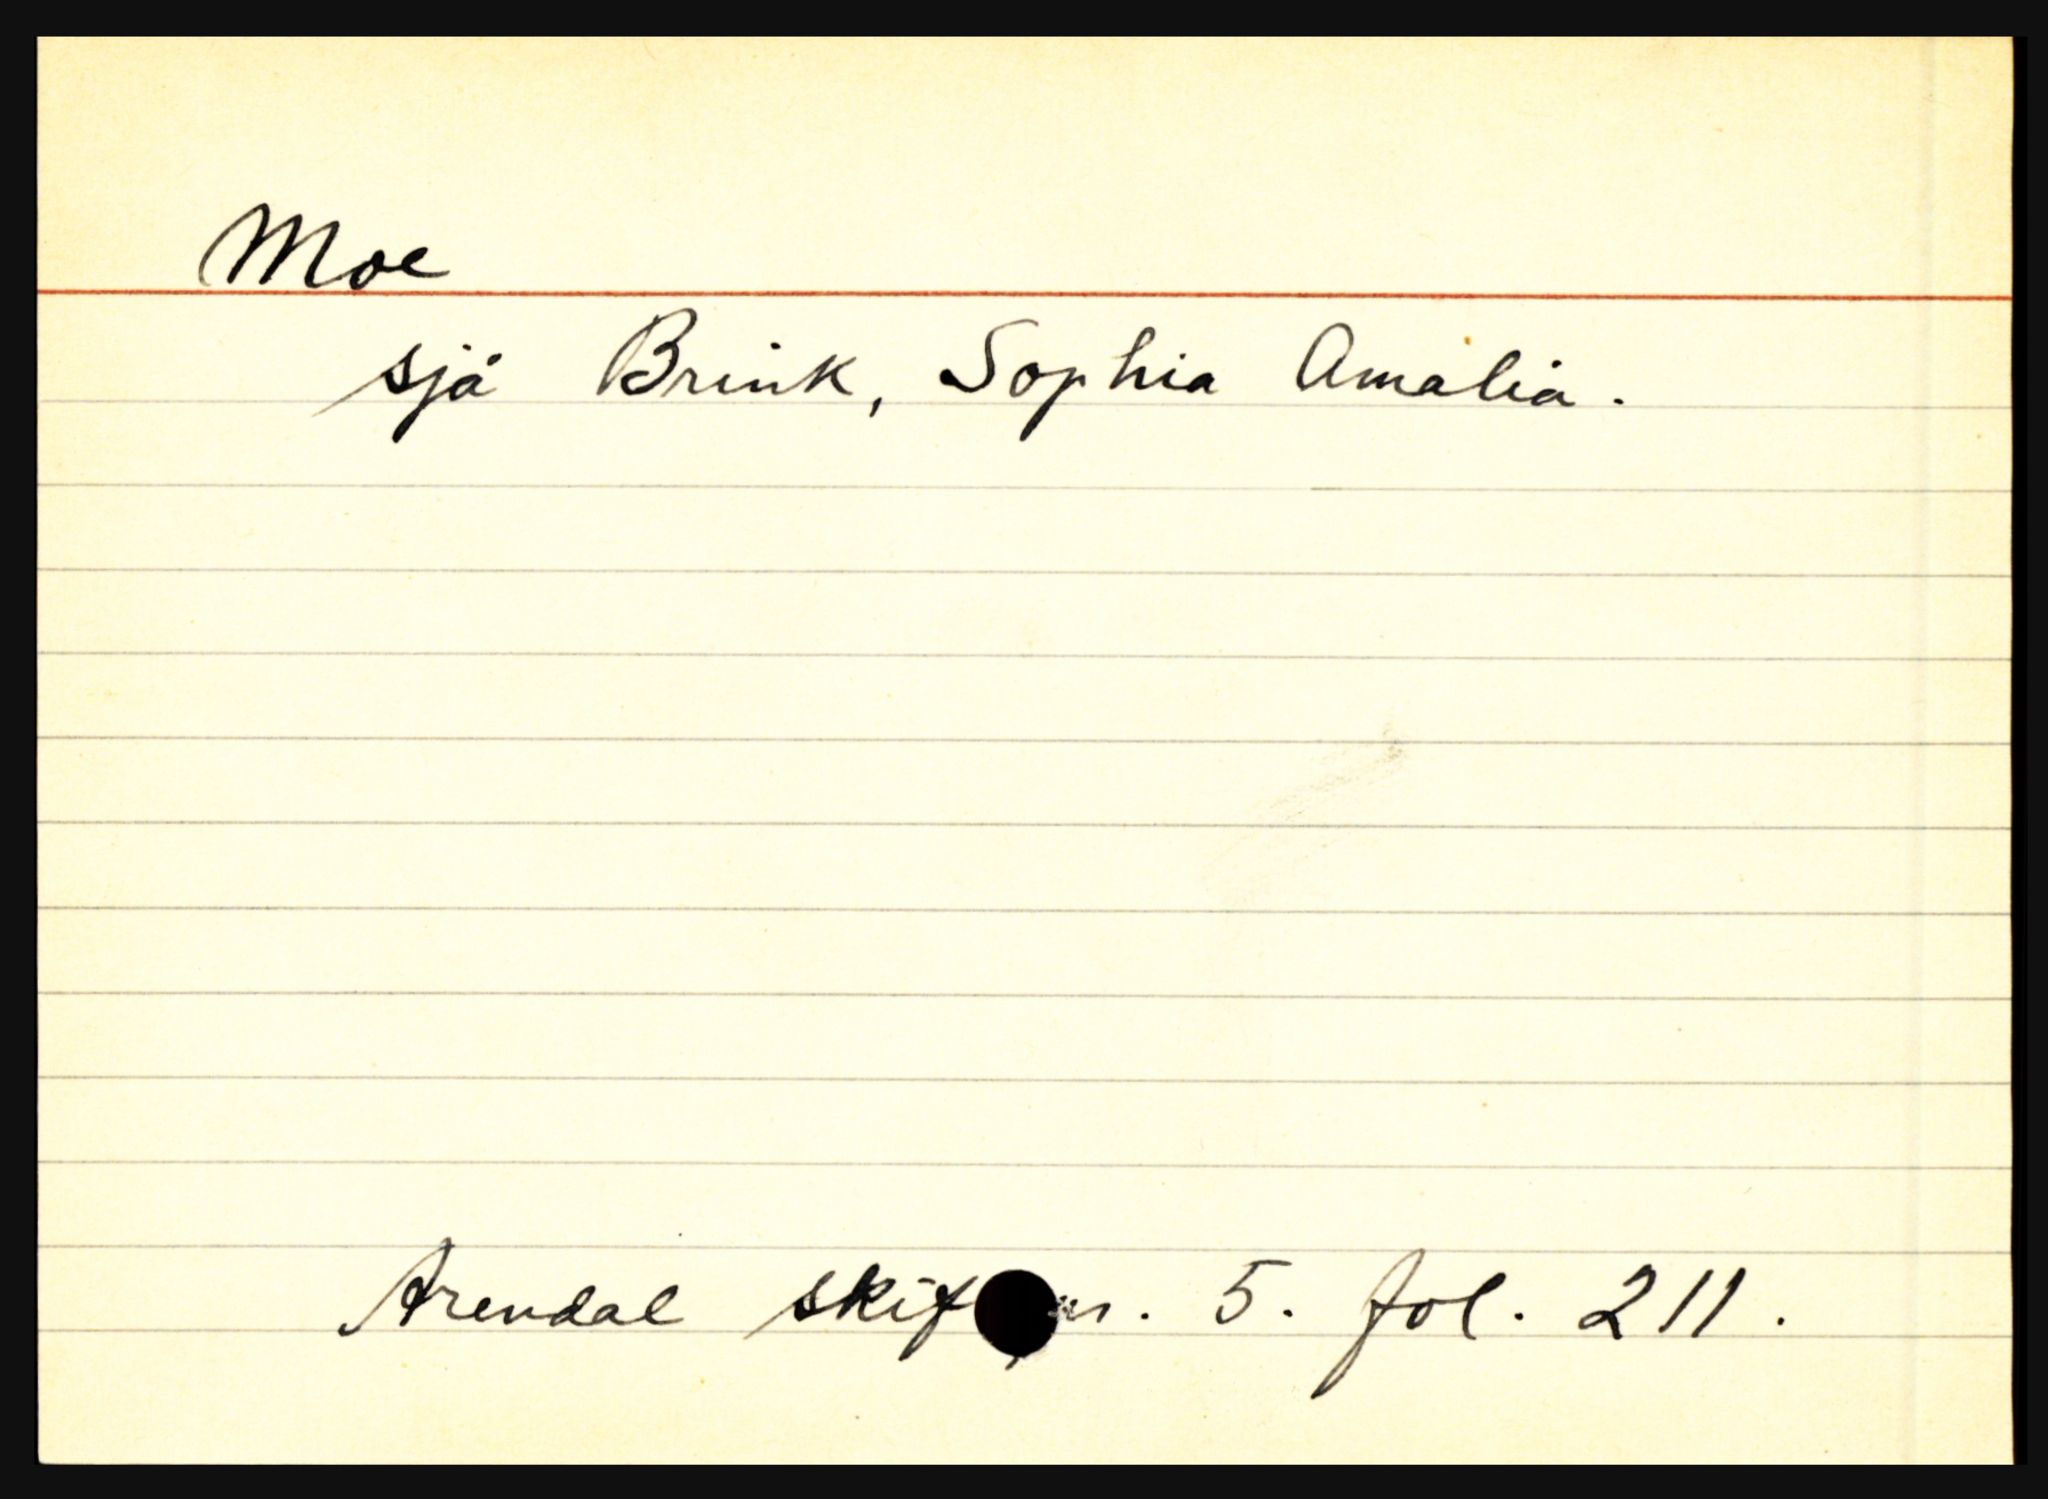 Moe
sjå Brink, Sophia Amalia.
Arendal 5. fol. 211.